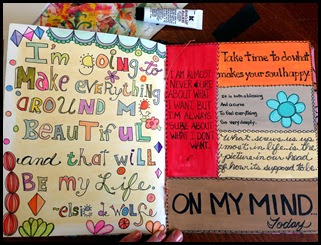 I'm going to
Make everything
AROUND ME
BEAUTIFUL
and that will
BE my Life.
~elsie d. Wolfe~
I AM ALMOST
NEVER SURE
ABOUT WHAT
I WANT BUT
I'M ALWAYS
SURE ABOUT
WHAT I DON'T
WANT.
Take time to do what
makes your soul happy.
it is both a blessing
And a curse
To feel everything
So very deeply.
What screws us up
most in life is the
picture in our head
of how its supposed to be.
ON MY MIND
Today